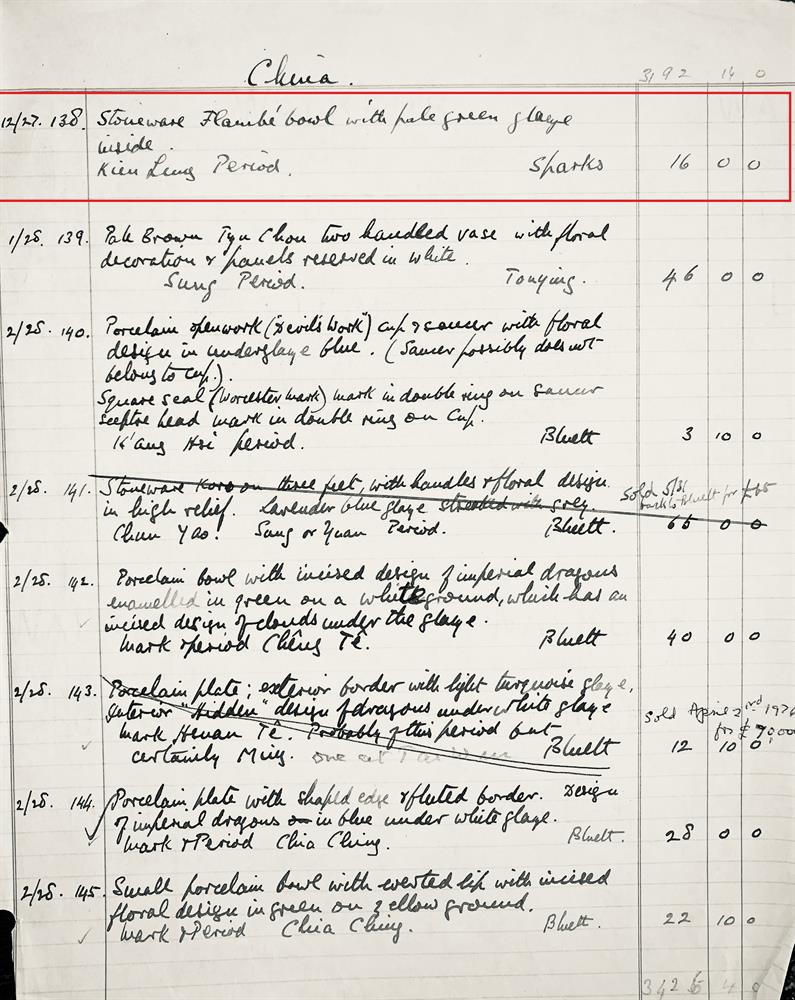 China.
3192 14 0
12/27. 138. Stoneware Flambé bowl with pale green glaze
inside.
Kien Lung Period. Sparks 16 0 0
1/28. 139. Pale Brown Tzu Chou two handled vase with floral
decoration & panels reserved in white.
Sung Period. Tonying. 46 0 0
2/28. 140. Porcelain openwork ("Devil's Work") cup & saucer with floral
design in underglaze blue. (Saucer possibly does not
belong to cup.).
Square seal (Worcester mark) mark in double ring on saucer
sceptre head mark in double ring on cup.
K'ang Hsi period. Bluett 3 10 0
2/28. 141. Stoneware Koro on three feet, with handles & floral design
in high relief. Lavender blue glaze streaked with grey.
Sold 5/31
back to Bluett for £65
Chun Yao. Sung or Yuan Period. Bluett. 65 0 0
2/28. 142. Porcelain bowl with incised design of imperial dragons
enamelled in green on a white ground, which has an
incised design of clouds under the glaze.
Mark & period Chêng Tê. Bluett 40 0 0
2/28. 143. Porcelain plate; exterior border with light turquoise glaze,
Interior "Hidden" design of dragons under white glaze
Mark Hsuan Tê. Probably of this period but
Sold April 2nd 1974
for £7000
certainly Ming. one at Bluett 12 10 0
2/28. 144. Porcelain plate with shaped edge & fluted border. Design
of imperial dragons in blue under white glaze.
Mark & Period Chia Ching. Bluett. 28 0 0
2/28. 145. Small porcelain bowl with everted lip with incised
floral design in green on yellow ground.
Mark & Period Chia Ching. Bluett. 22 10 0
3426 4 0